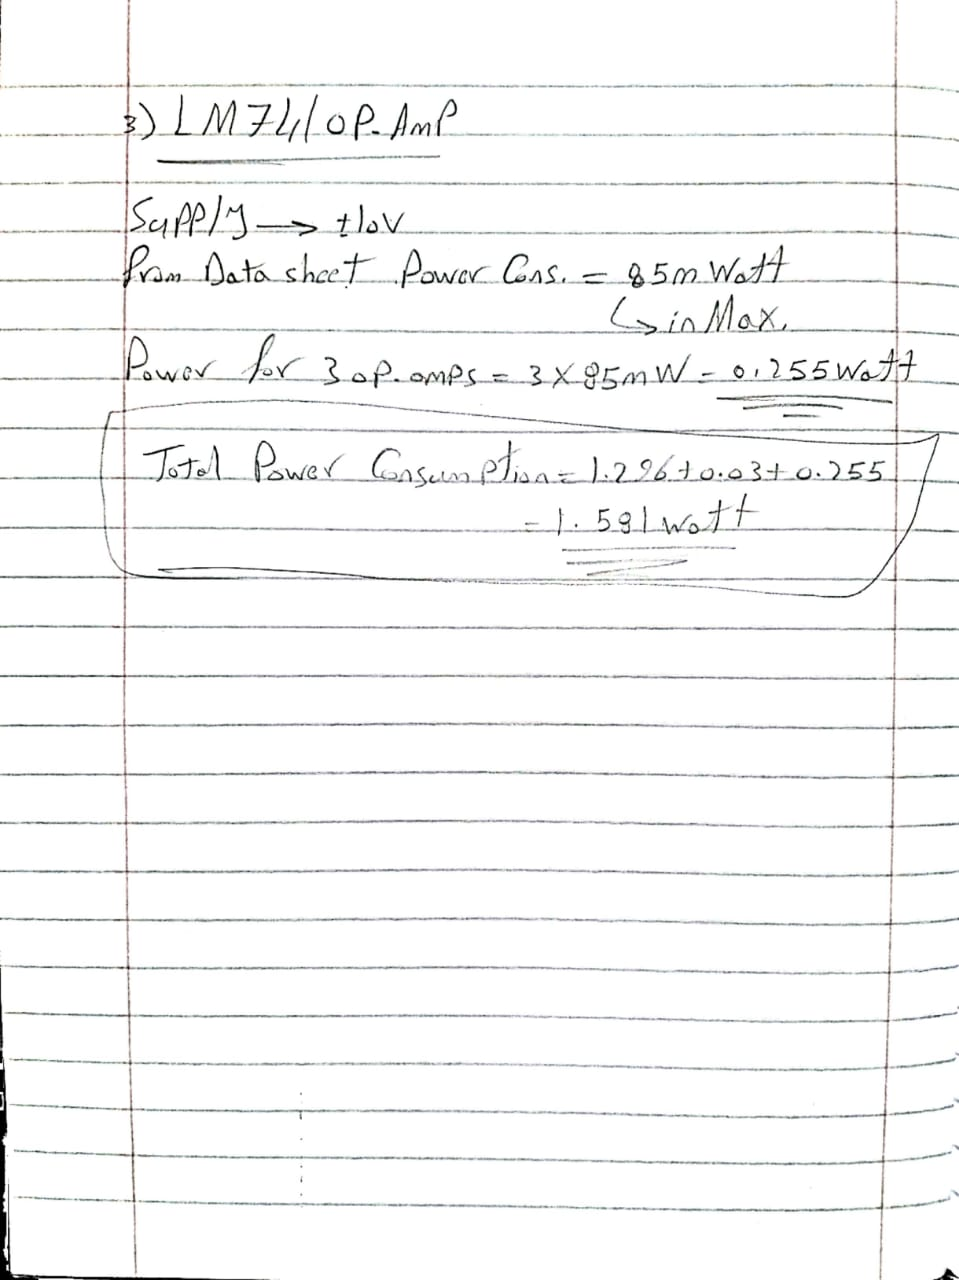 3) LM741 OP-AmP
Supply → ±10V
from Data sheet Power Cons. = 85m Watt
↳ in Max.
Power for 3 op.amps = 3 X 85mW = 0.255 Watt
Total Power Consumption = 1.296+0.03+0.255
= 1.581 watt